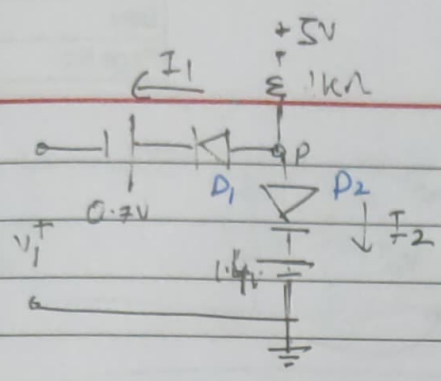 +5V
I1
1kΩ
P
D1
D2
0.7V
I2
V1
+